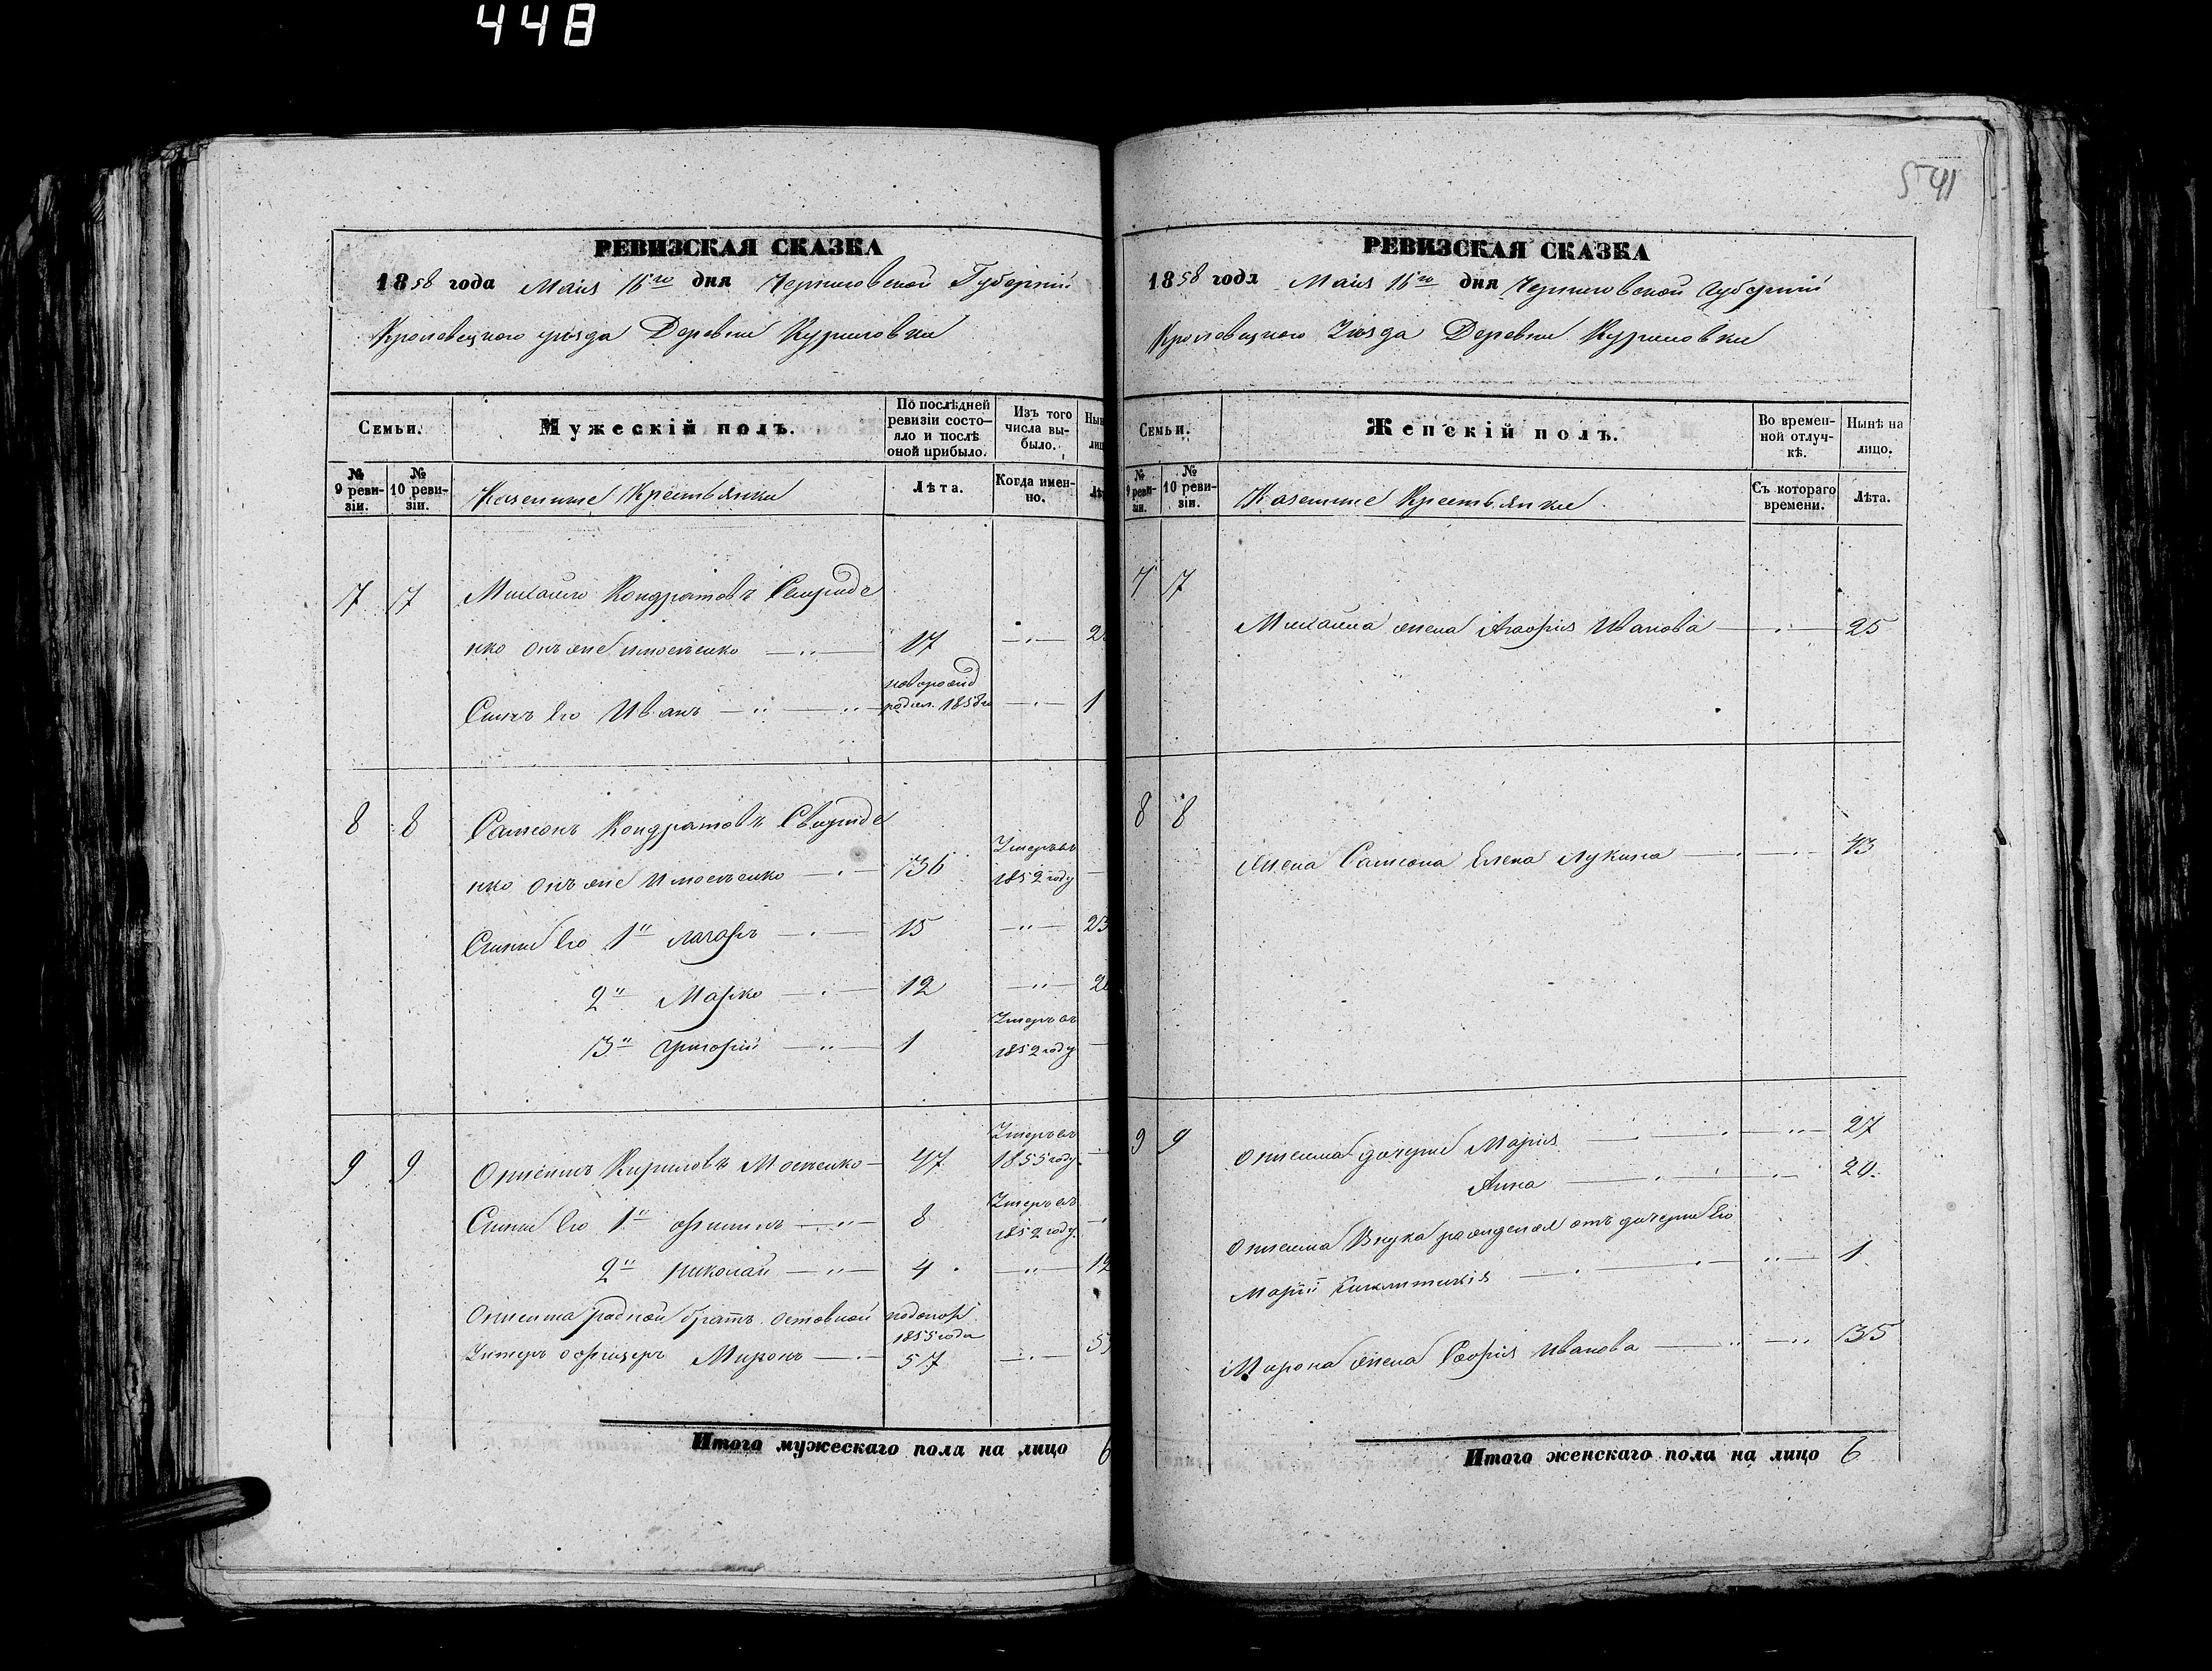 448
РЕВИЗСКАЯ СКАЗКА
1858 года Маія 15го дня Черниговской Губерніи
Кролевецкого уѣзда Деревни Куриловки
Семьи.
Мужескій полъ.
По послѣдней ревизіи состояло и послѣ оной прибыло.
Изъ того числа выбыло.
№ 9 ревизіи.
№ 10 ревизіи.
Казенные Крестьянки
Лѣта.
Когда именно.
7 7 Михайло Кондратовъ Свириде
нко онъ же 17
новорожд
Сынъ Его Иванъ родил. 1858го 1
8 8 Самсонъ Кондратовъ Свириде
нко онъ же 36 Умеръ въ 1852 году
Сыны Его 1й Лазарь 15 23
2й Марко 12
3й Григорій 1 Умеръ въ 1852 году
9 9 Кириловъ 47 Умеръ въ 1855 году
Сыны Его 1й 8 Умеръ въ 1852 году.
2й Николай 4 12
родной братъ
1855 года
Унтеръ офицеръ Миронъ 57
Итого мужескаго пола на лицо 6
541
РЕВИЗСКАЯ СКАЗКА
1858 года Маія 15го дня Черниговской Губерніи
Кролевецкого Уѣзда Деревни Куриловки
Семьи.
Женскій полъ.
Во временной отлучкѣ.
Нынѣ на лицо.
№ 9 ревизіи.
№ 10 ревизіи.
Казенные Крестьянки
Съ котораго времени.
Лѣта.
7 7
Михайла жена Иванова 25
8 8
Жена Самсона Елена Лукина 43
9 9 дочери Марія 27
Анна 20.
Внука рожденая отъ дочери Его
Маріи 1
Мирона жена Софія Иванова 35
Итого женскаго пола на лицо 6